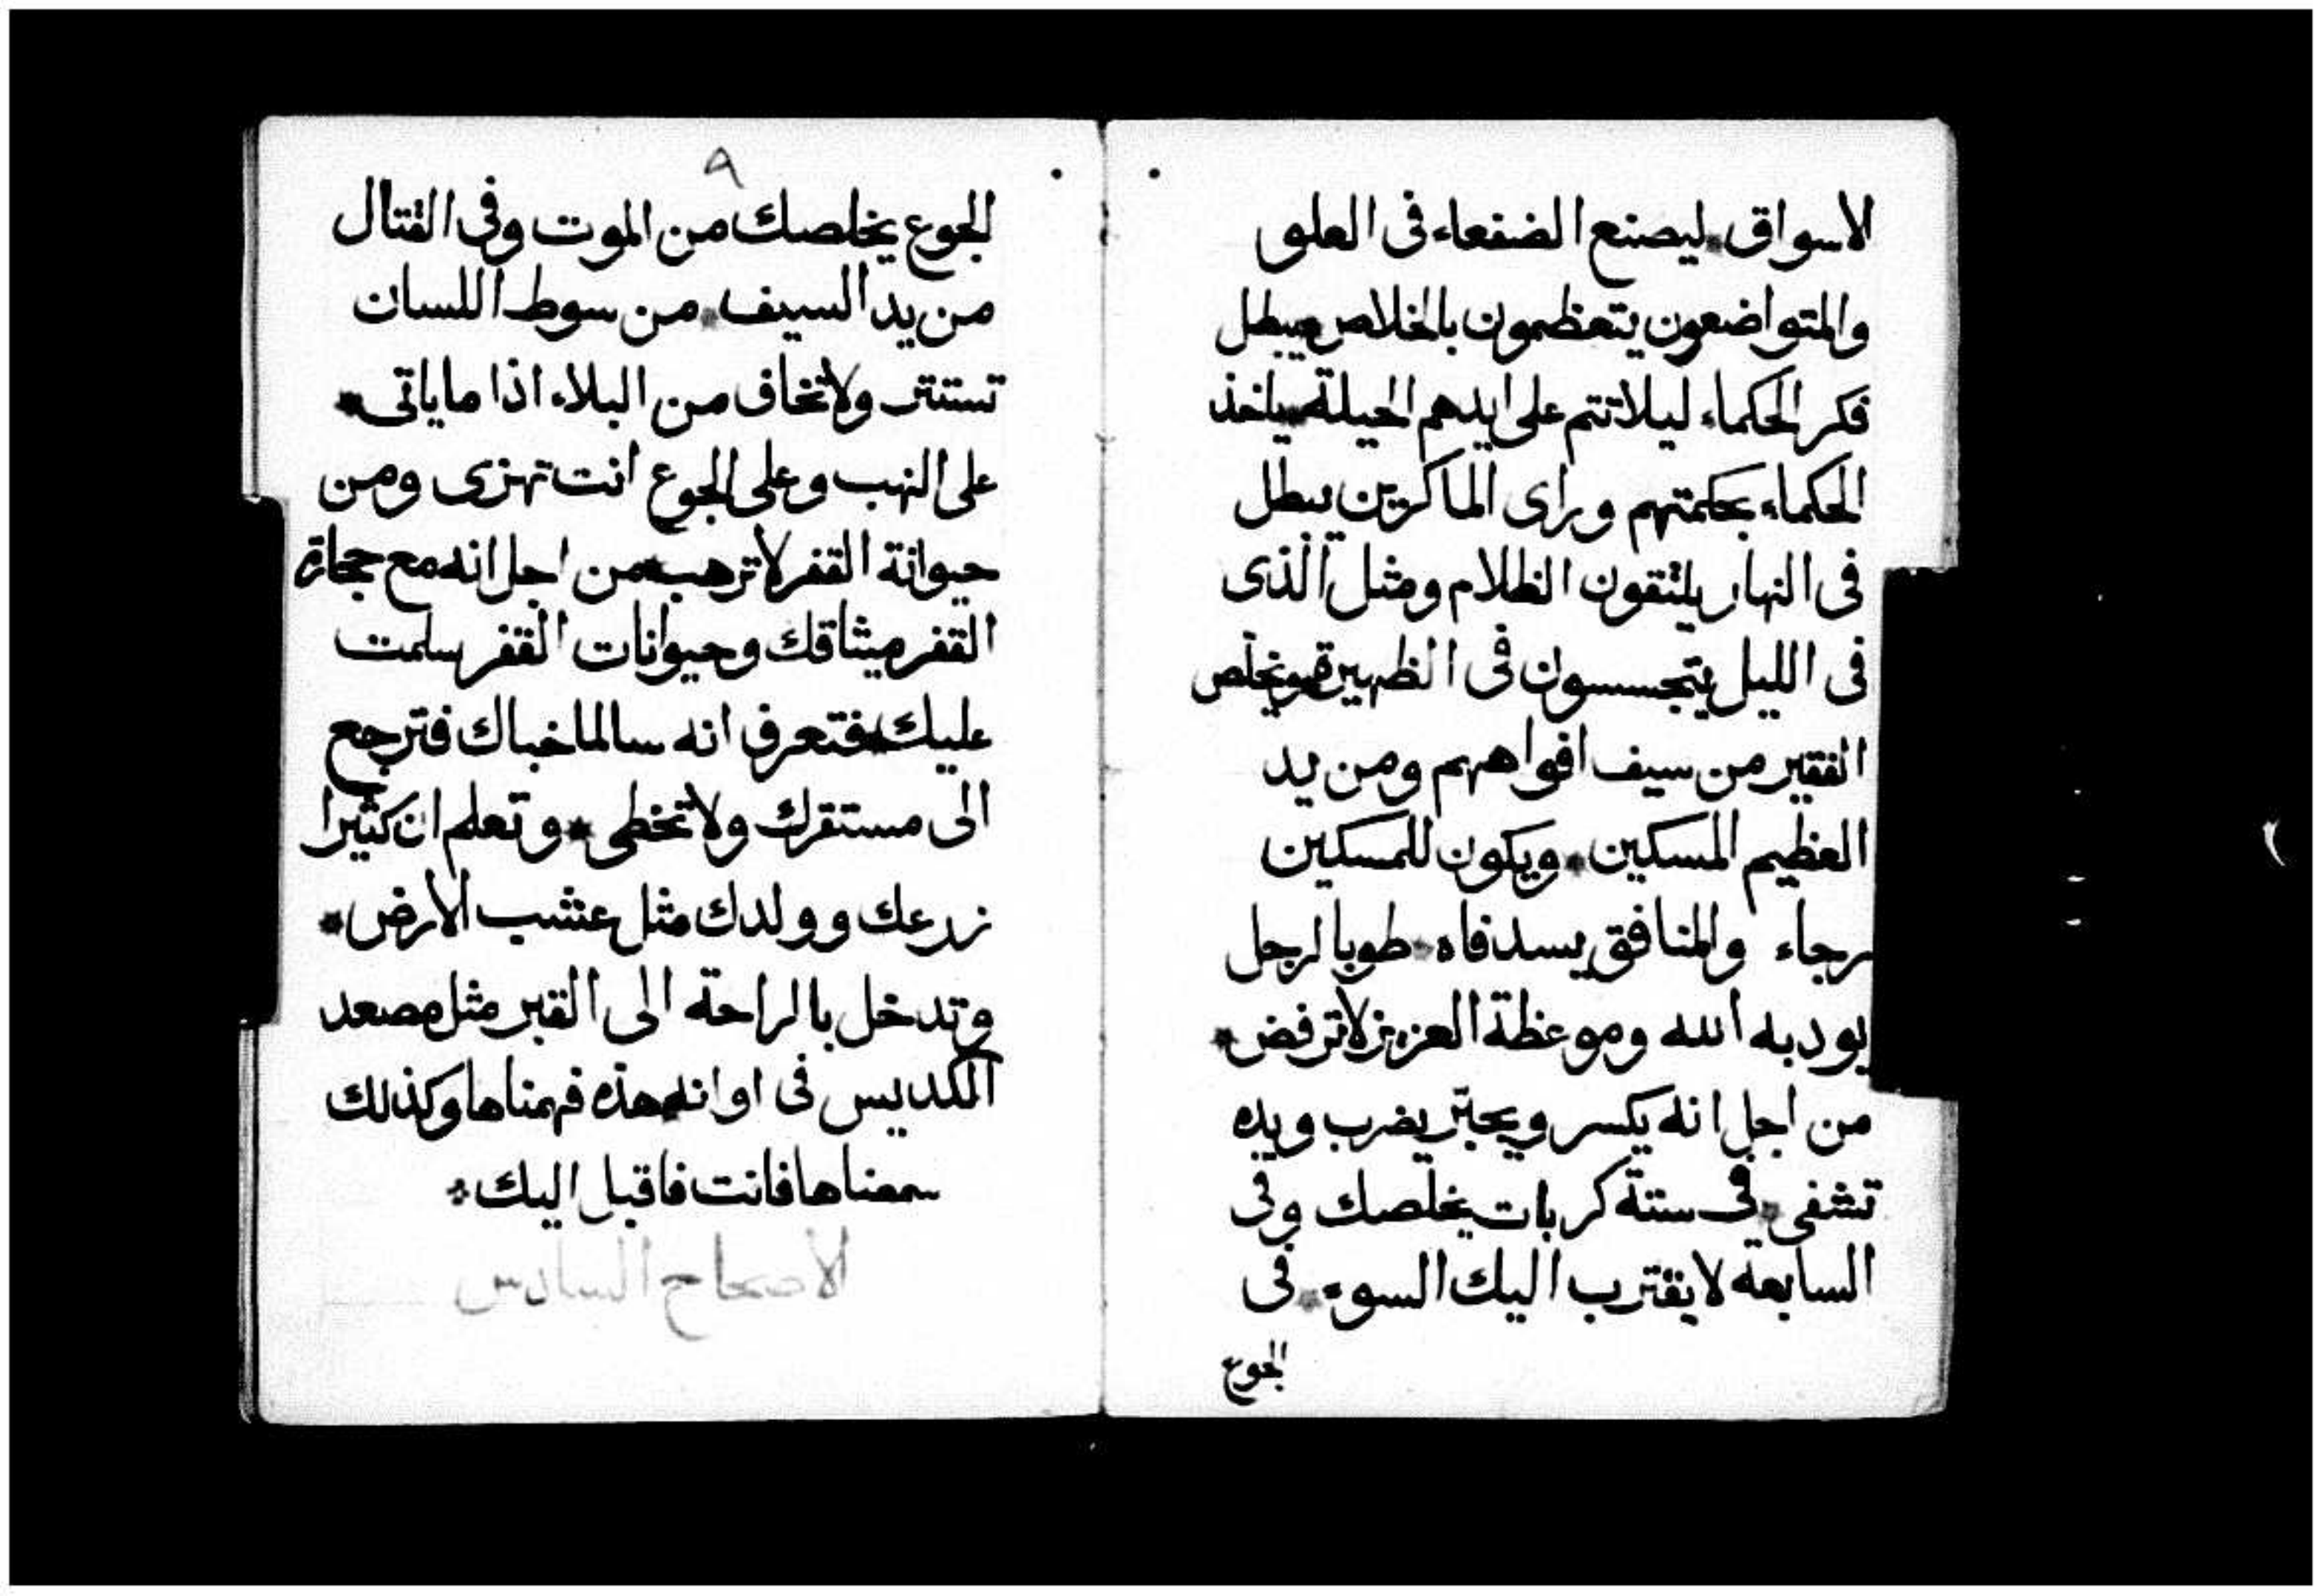 الاسواق * ليصنع الضفعاء فى العلو
والمتواضعون يتعظمون بالخلاص * يبطل
فكر الحكماء ليلا تتم على ايدهم الحيلة * ياخذ
الحكماء بحكمتهم وراى الماكريين يبطل
فى النهار يلتقون الظلام ومثل الذى
فى الليل يتجسسون فى الظهيرة * ويخلص
الفقير من سيف افواههم ومن يد
العظيم المسكين * ويكون للمسكين
رجاء والمنافق يسد فاه * طوبا لرجل
يودبه الله وموعظة العزيز لا ترفض *
من اجل انه يكسر ويجبر يضرب ويده
تشفى * فى ستة كربات يخلصك وفى
السابعة لا يقترب اليك السوء * فى
الجوع
٩
الجوع يخلصك من الموت وفى القتال
من يد السيف * من سوط اللسان
تستتر ولا تخاف من البلاء اذا ما ياتى *
على النهب وعلى الجوع انت تهزى ومن
حيوانة القفر لا ترهب * من اجل انه مع حجارة
القفر ميثاقك وحيوانات القفر سلمت
عليك * فتعرف انه سالما خباك فترجع
الى مستقرك ولا تخطى * وتعلم ان كثيرا
زرعك وولدك مثل عشب الارض *
وتدخل بالراحة الى القبر مثل مصعد
الكديس فى اوانه * هذه فهمناها وكذلك
سمعناها فانت فاقبل اليك *
الاصحاح السادس